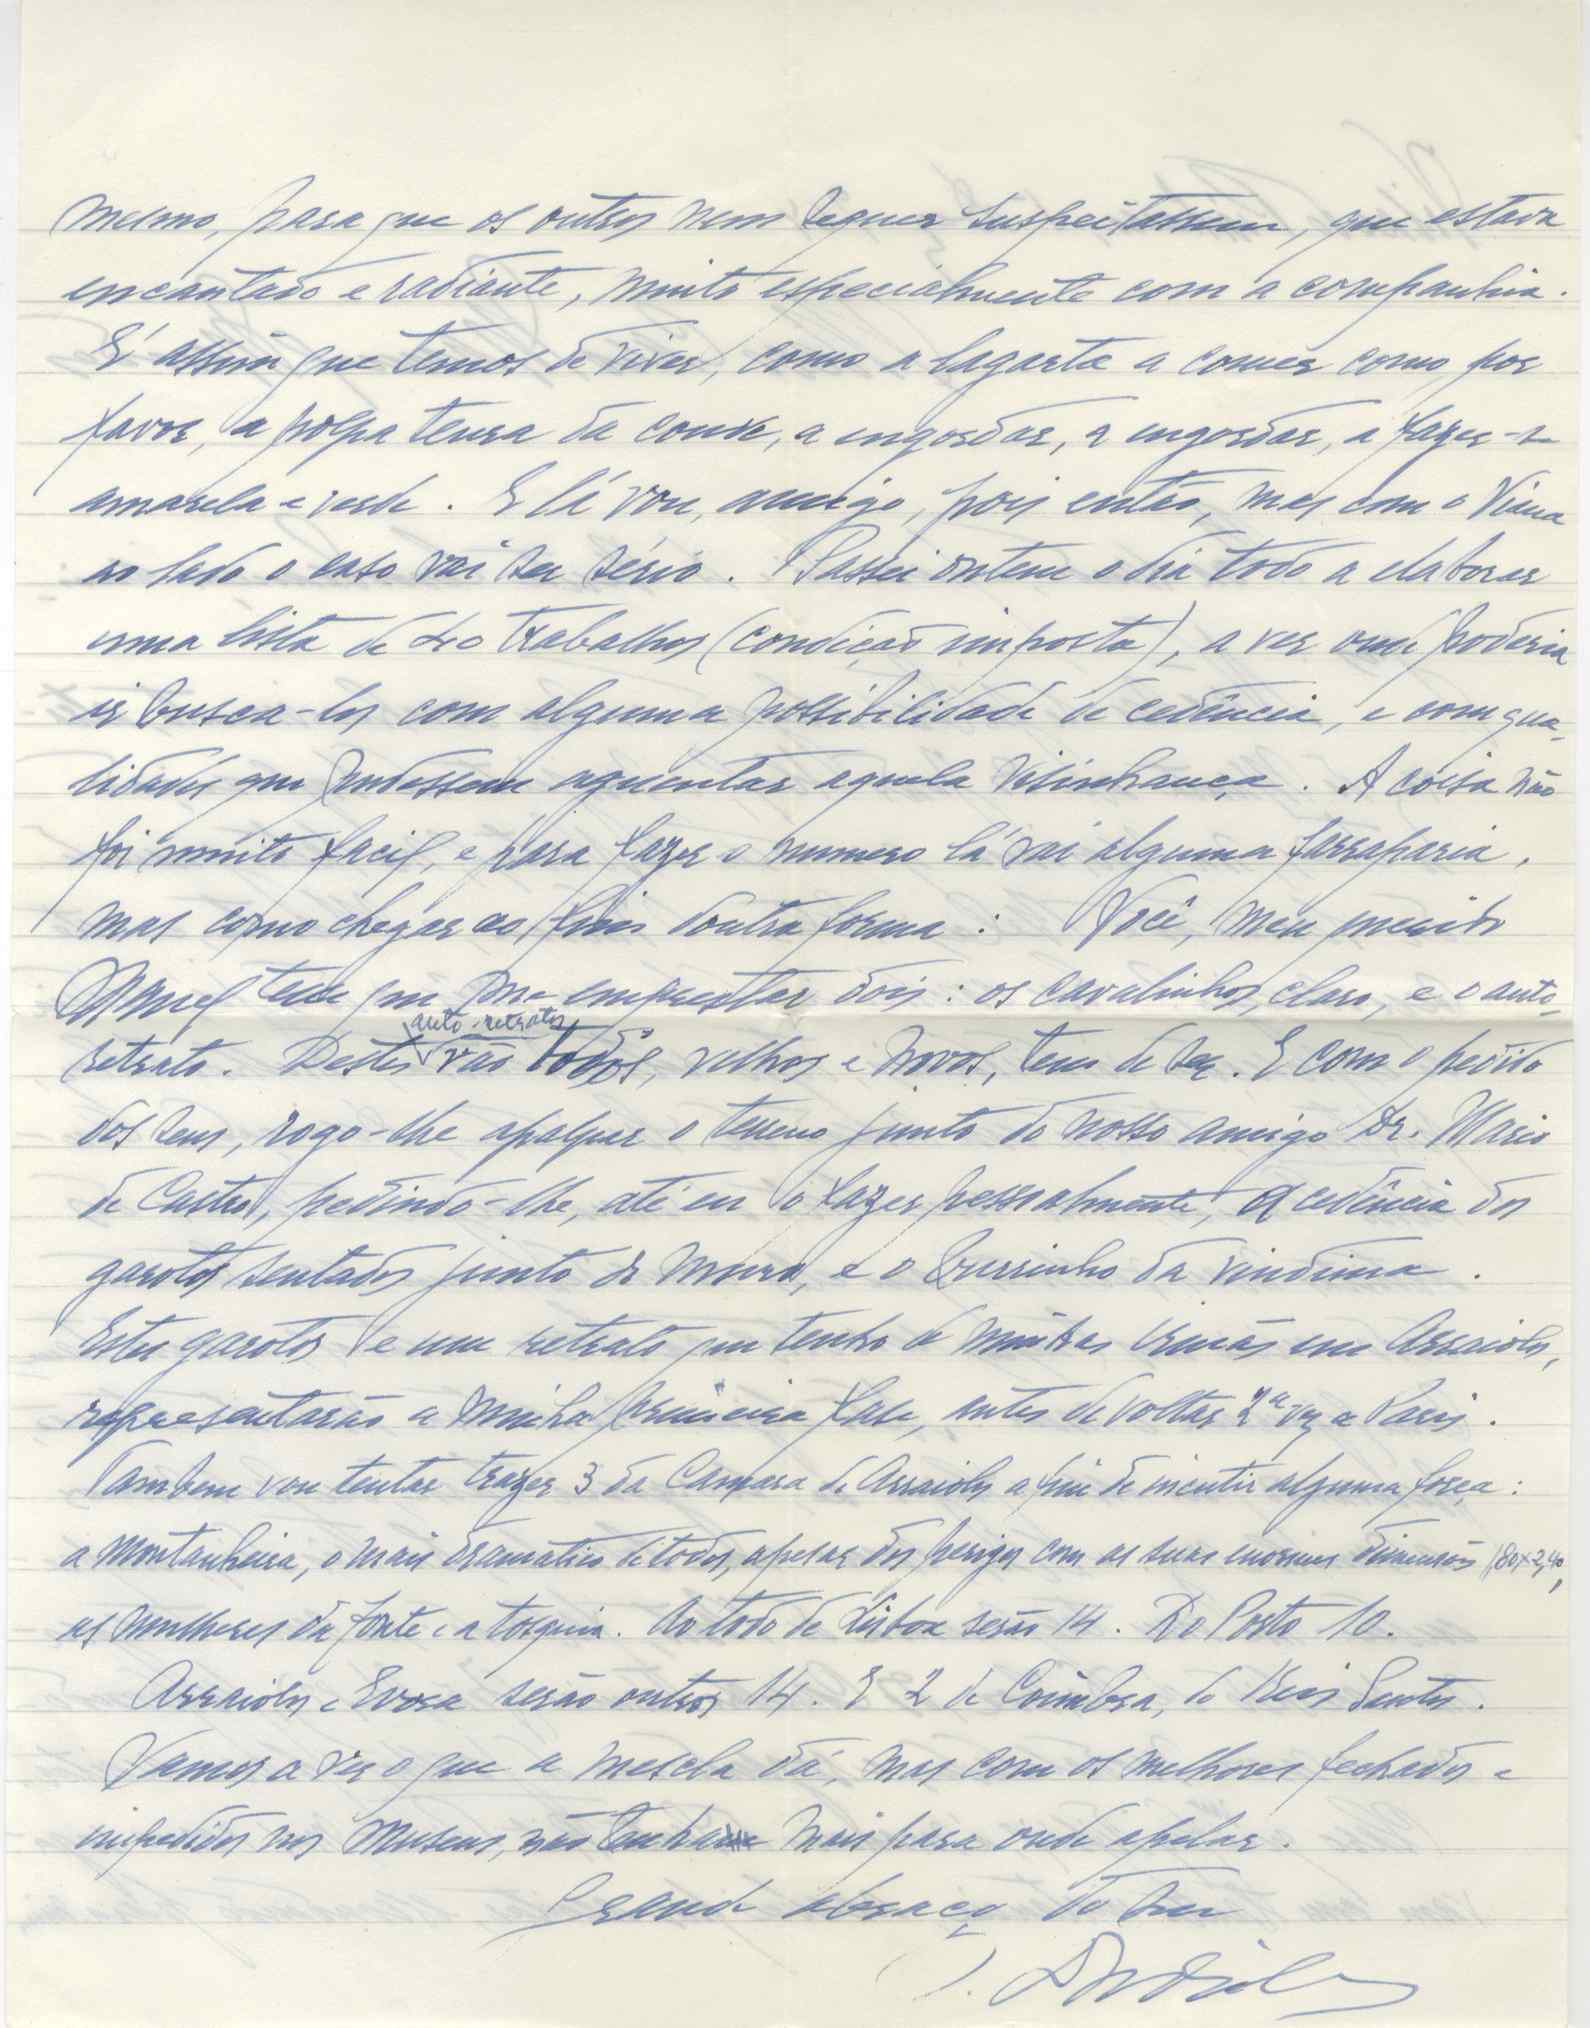 mesmo, para que os outros nem sequer suspeitassem, que estava
encantado e radiante, muito especialmente com a companhia.
E' assim que temos de viver, como a lagarta a comer como por
favor, a polpa tenra da couve, a engordar, a engordar, a fazer-se
amarela e verde. E lá vou, amigo, pois então, mas com o Viana
ao lado o caso vai ser sério. Passei ontem o dia todo a elaborar
uma lista de 40 trabalhos (condição imposta), a ver onde poderia
ir busca-los com alguma possibilidade de cedência, e com qua-
lidades que pudessem aguentar aquela visinhança. A coisa não
foi muito facil, e para fazer o numero lá vai alguma farraparia,
mas como chegar ao fim doutra forma: Você, meu querido
Manuel tem que me emprestar dois: os cavalinhos, claro, e o auto-
retrato. Destes auto-retratos vão todos, velhos e novos, tem de ser. E com o pedido
dos seus, rogo-lhe apalpar o terreno junto do nosso amigo Dr. Mario
de Castro, pedindo-lhe, até eu o fazer pessoalmente, a cedência dos
garotos sentados junto do muro, e o burrinho da vindima.
Estes garotos e um retrato que tenho de minhas irmãs em Arraiolos,
representarão a minha primeira fase, antes de voltar 2ª vez a Paris.
Tambem vou tentar trazer 3 da Camara de Arraiolos a fim de incutir alguma força:
a montanheira, o mais dramatico de todos, apesar dos perigos com as suas enormes dimensões 1,80x2,40,
as mulheres da fonte e a tosquia. Ao todo de Lisboa serão 14. Do Porto 10.
Arraiolos e Evora serão outros 14. E 2 de Coimbra, do Reis Santos.
Vamos a ver o que a mescla dá, mas com os melhores fechados e
impedidos nos Museus, não tenho mais para onde apelar.
Grande abraço do seu
D. Gordillo